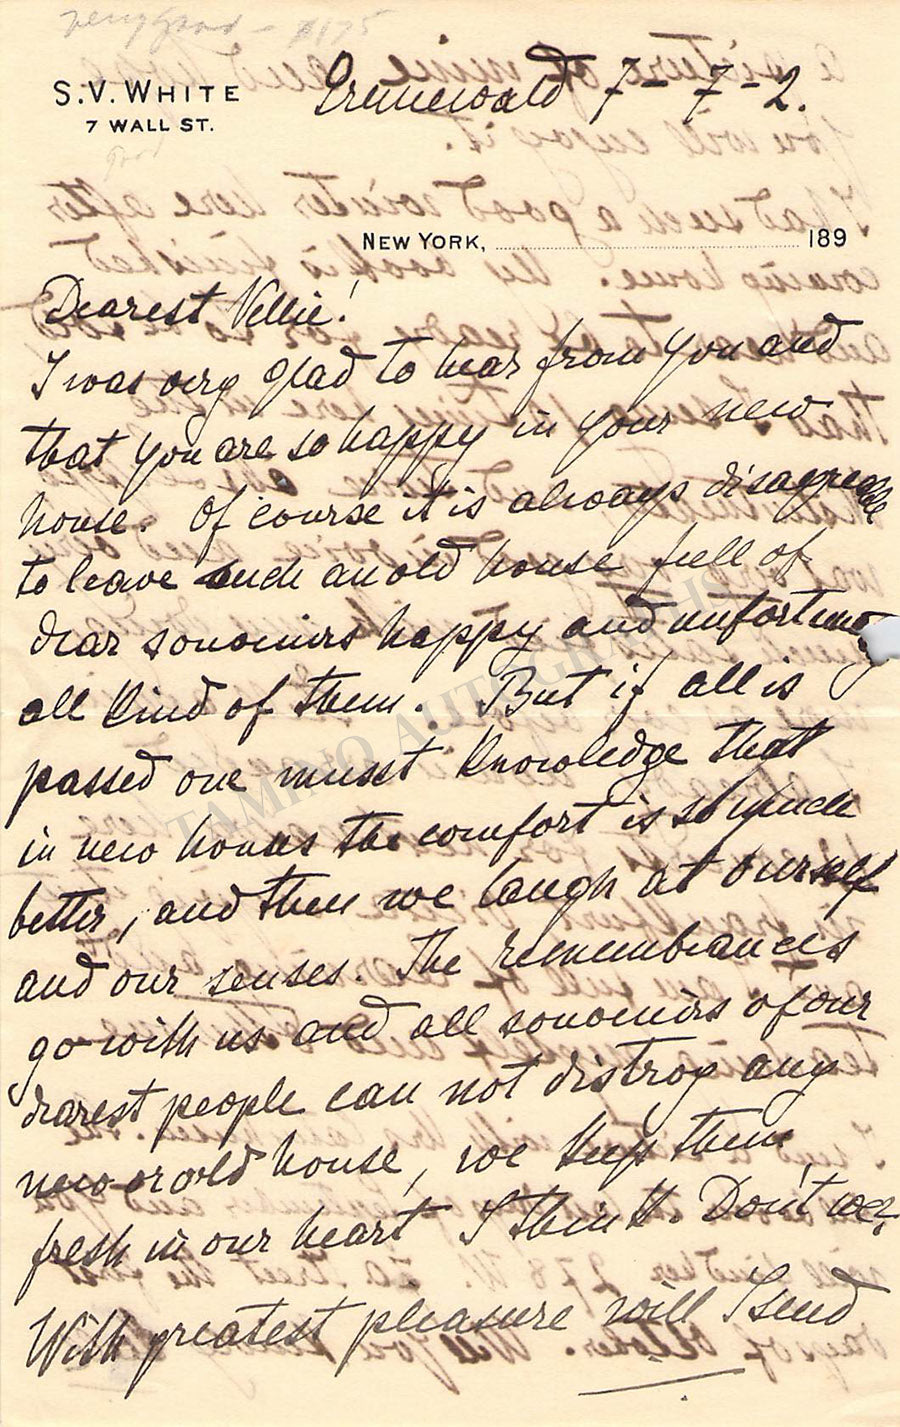 very good - $175
S.V. WHITE
7 WALL ST.
Grunewald 7-7-2.
NEW YORK, 189
Dearest Nellie!
I was very glad to hear from you and
that you are so happy in your new
house. Of course it is always disagreeable
to leave such an old house full of
dear souveniers happy and unfortunate
all kind of them. But if all is
passed one musst knowledge that
in new houses the comfort is so much
better, and then we laugh at ourself
and our senses. The remembrances
go with us and all souveniers of our
dearest people can not distroy any
new or old house, we keep them
fresh in our heart I think. Don't we?
With greatest pleasure will I send
TAMINO AUTOGRAPHS